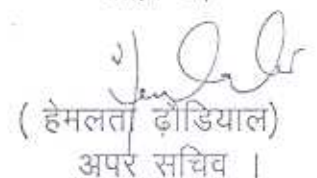 ( हेमलता ढ़ौंडियाल)
अपर सचिव ।